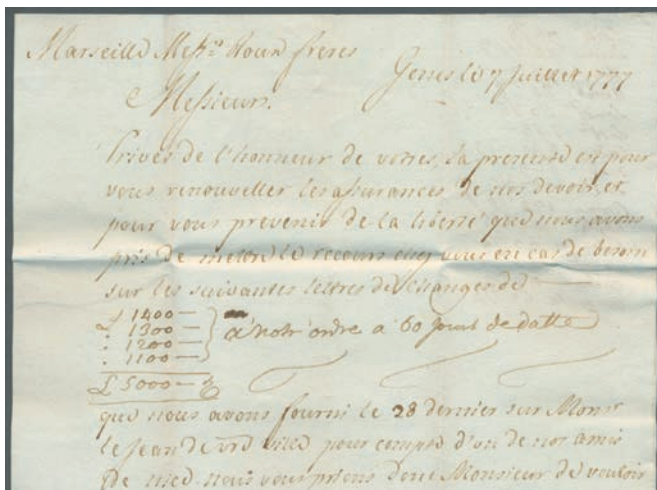 Marseille Mess.rs Roux freres
Genes le 7 Juillet 1777
Messieurs.
Privés de l'honneur de votres, la presente est pour
vous renouveller les assurances de nos devoir, et
pour vous prevenir de la liberté que nous avons
pris de mettre le recours chez vous en cas de besoin
sur les suivantes lettres de changes de
£ 1400 —
: 1300 —
: 1200 —
: 1100 —
a notr' ordre a 60 jours de datte
£ 5000 —
que nous avons fourni le 28 dernier sur Mons.r
le Jean de ville pour compte d'un de nos amis
de nous vous prions donc Monsieur de vouloir